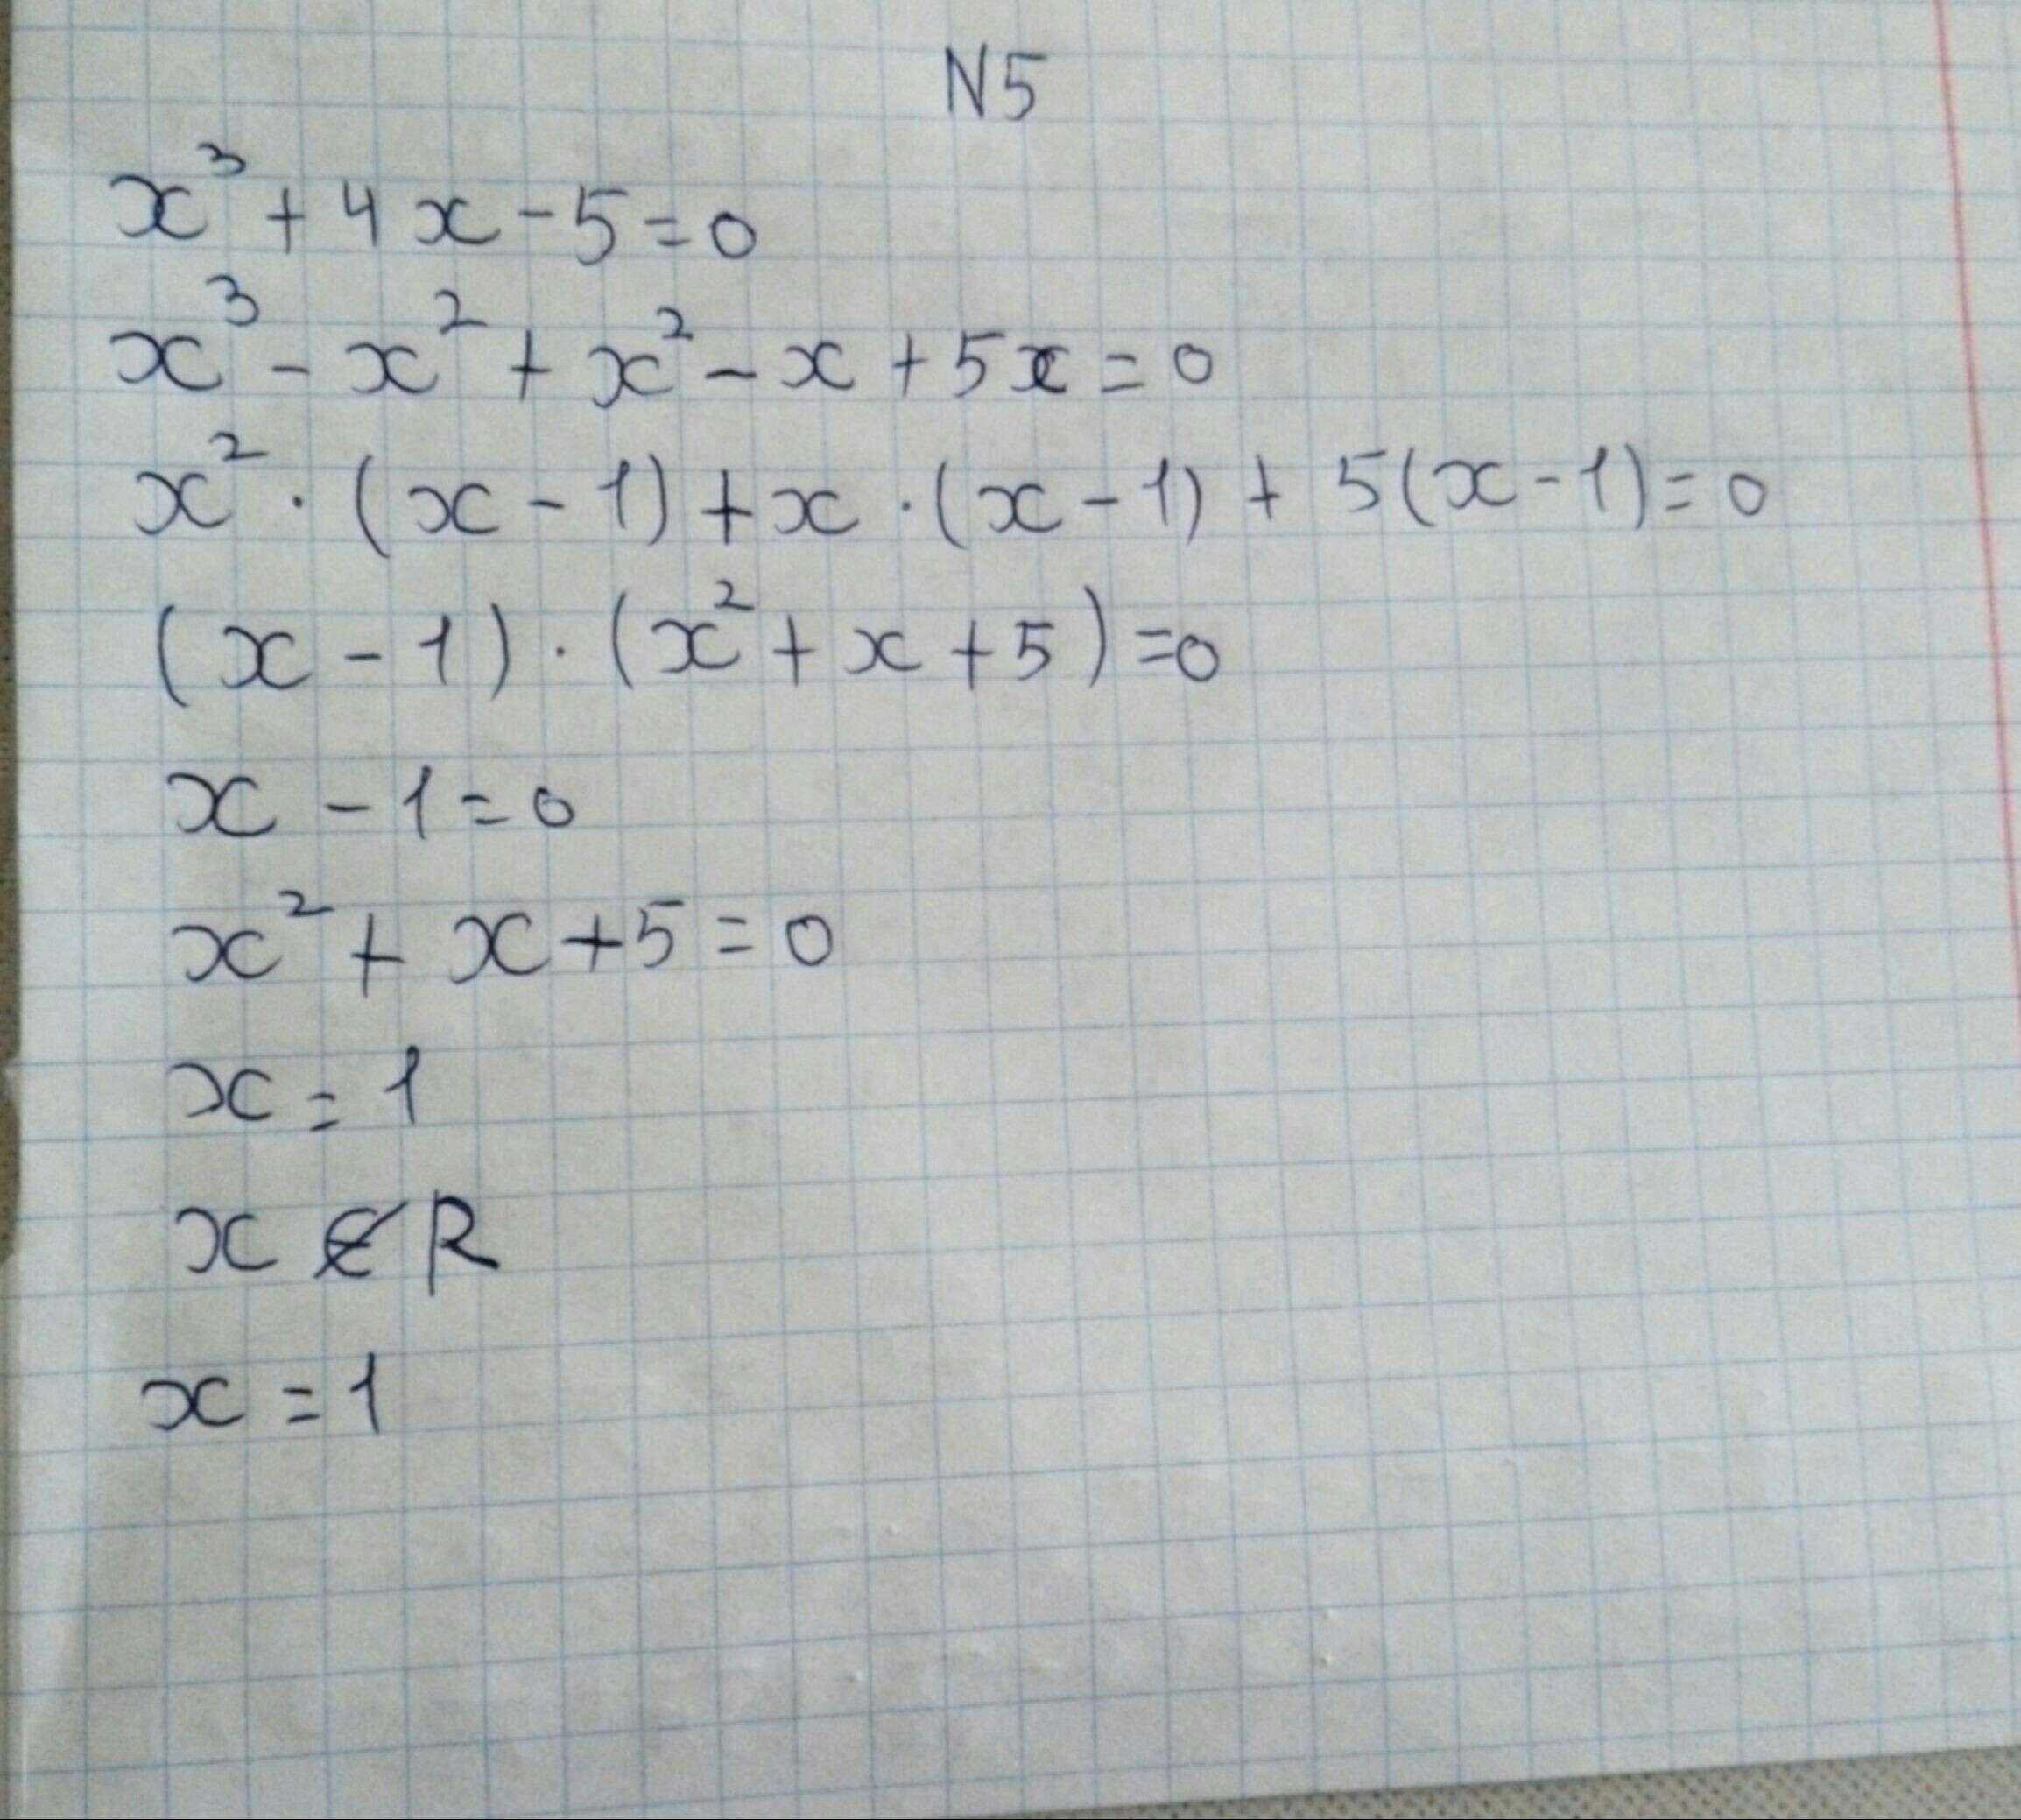 N5
x³ + 4x - 5 = 0
x³ - x² + x² - x + 5x = 0
x² · (x - 1) + x · (x - 1) + 5(x - 1) = 0
(x - 1) · (x² + x + 5) = 0
x - 1 = 0
x² + x + 5 = 0
x = 1
x ∉ R
x = 1